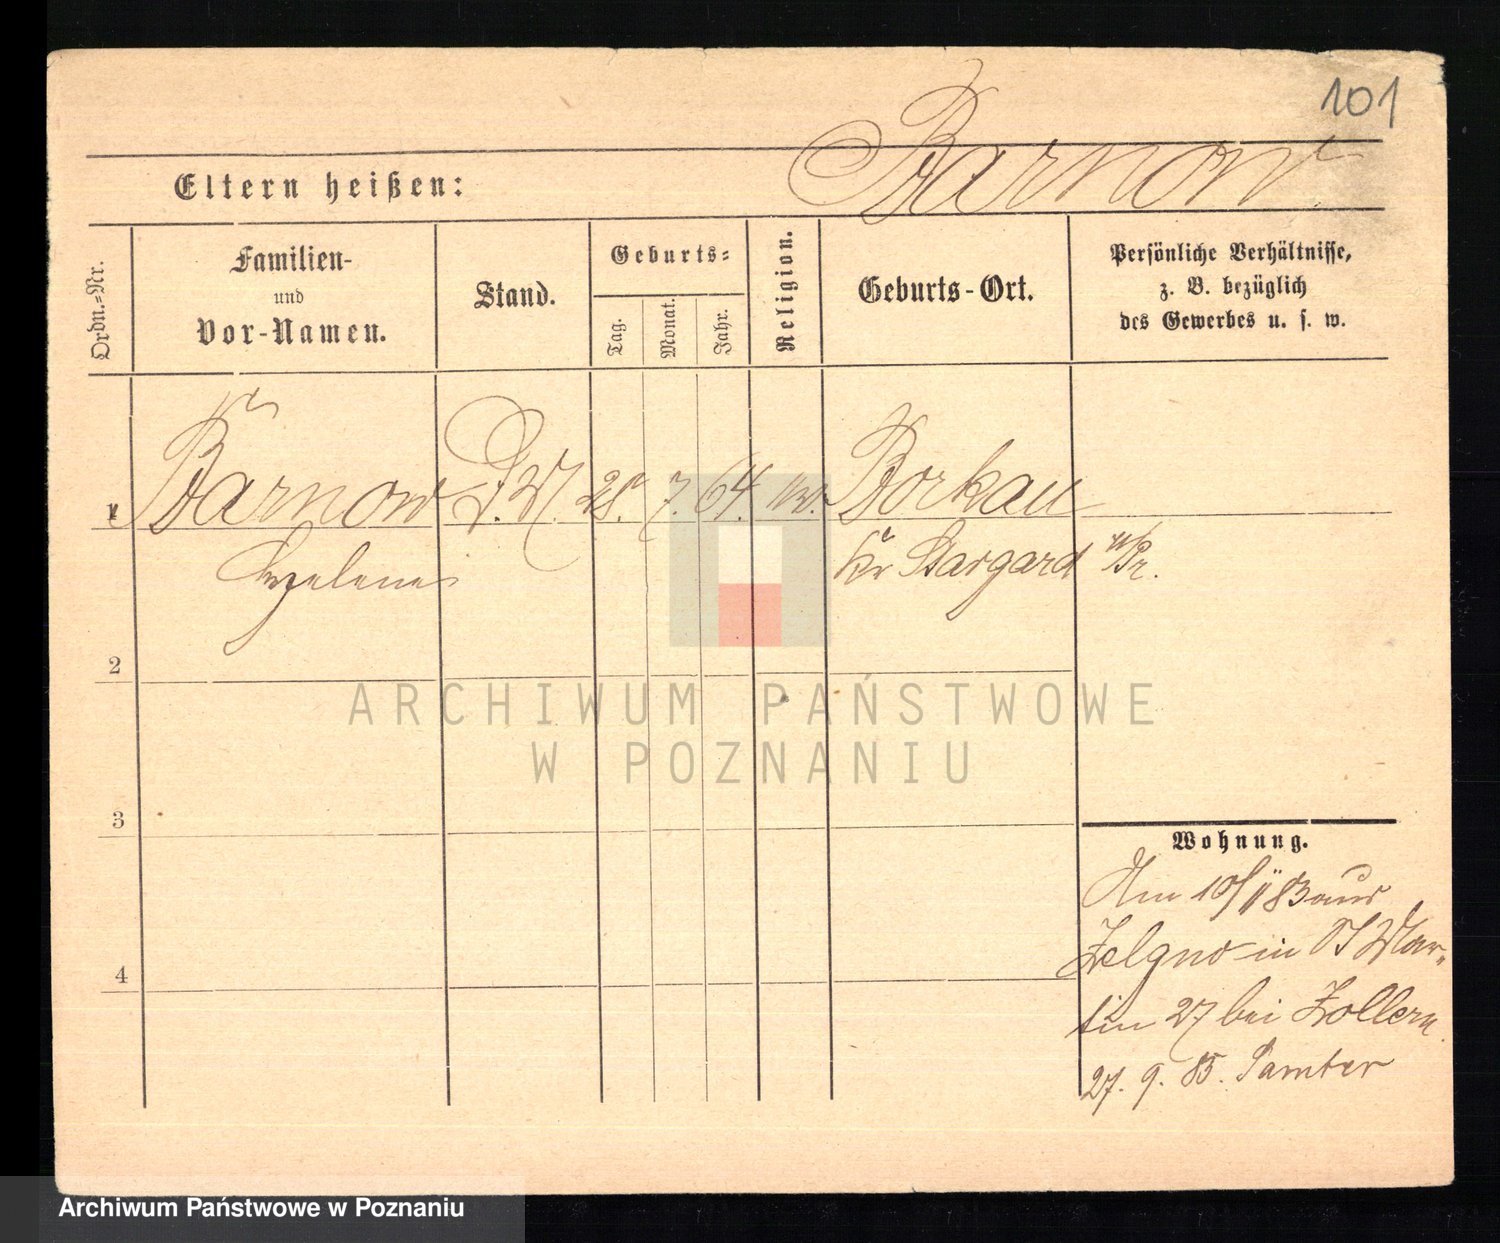 101
Barnow
Eltern heißen:
Ordn.=Nr.
Familien-
und
Vor-Namen.
Stand.
Geburts=
Tag.
Monat.
Jahr.
Religion.
Geburts-Ort.
Persönliche Verhältnisse,
z. B. bezüglich
des Gewerbes u. s. w.
1 Barnow D. M. 28. 7. 64. Borkau
Helene Kr Stargard w/Pr.
2
ARCHIWUM PAŃSTWOWE
W POZNANIU
3
Wohnung.
Am 10/11 83 aus
Zelgno in St Mar-
4
tin 27 bei Zollern
27. 9. 85. Samter
Archiwum Państwowe w Poznaniu